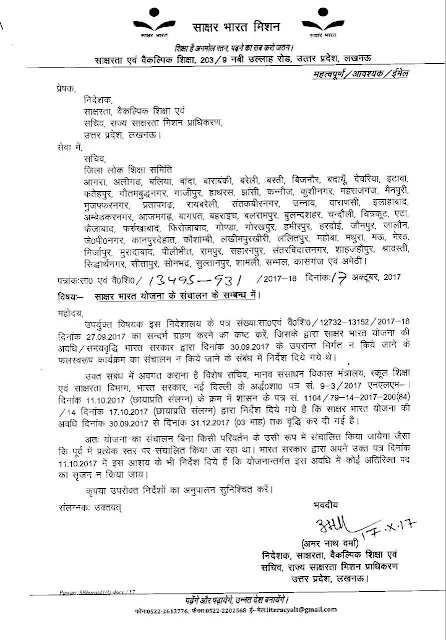 साक्षर भारत मिशन
साक्षर भारत
साक्षर भारत
शिक्षा है अनमोल रतन, पढ़ने का सब करो जतन।
साक्षरता एवं वैकल्पिक शिक्षा, 203/9 नबी उल्लाह रोड, उत्तर प्रदेश, लखनऊ
महत्वपूर्ण/आवश्यक/ईमेल
प्रेषक,
निदेशक,
साक्षरता, वैकल्पिक शिक्षा एवं
सचिव, राज्य साक्षरता मिशन प्राधिकरण,
उत्तर प्रदेश, लखनऊ।
सेवा में,
सचिव,
जिला लोक शिक्षा समिति
आगरा, अलीगढ़, बलिया, बांदा, बाराबंकी, बरेली, बस्ती, बिजनौर, बदायूँ, देवरिया, इटावा,
फतेहपुर, गौतमबुद्धनगर, गाजीपुर, हाथरस, झांसी, कन्नौज, कुशीनगर, महराजगंज, मैनपुरी,
मुजफ्फरनगर, प्रतापगढ़, रायबरेली, संतकबीरनगर, उन्नाव, वाराणसी, इलाहाबाद,
अम्बेडकरनगर, आजमगढ़, बागपत, बहराइच, बलरामपुर, बुलन्दशहर, चन्दौली, चित्रकूट, एटा,
फैजाबाद, फर्रुखाबाद, फिरोजाबाद, गोण्डा, गोरखपुर, हमीरपुर, हरदोई, जौनपुर, जालौन,
जे०पी०नगर, कानपुरदेहात, कौशाम्बी, लखीमपुरखीरी, ललितपुर, महोबा, मथुरा, मऊ, मेरठ,
मिर्जापुर, मुरादाबाद, पीलीभीत, रामपुर, सहारनपुर, संतरविदासनगर, शाहजहाँपुर, श्रावस्ती,
सिद्धार्थनगर, सीतापुर, सोनभद्र, सुल्तानपुर, शामली, सम्भल, कासगंज एवं अमेठी।
पत्रांकःसा0 एवं वै0शि0/ 13495-931 /2017-18 दिनांकः 17 अक्टूबर, 2017
विषयः- साक्षर भारत योजना के संचालन के सम्बन्ध में।
महोदय,
उपर्युक्त विषयक इस निदेशालय के पत्र संख्याःसा0एवं वै0शि0/12732-13152/2017-18
दिनांक 27.09.2017 का सन्दर्भ ग्रहण करने का कष्ट करें, जिसके द्वारा साक्षर भारत योजना की
अवधि/समयवृद्धि भारत सरकार द्वारा दिनांक 30.09.2017 के उपरान्त निर्गत न किये जाने के
फलस्वरूप कार्यक्रम का संचालन न किये जाने के संबंध में निर्देश दिये गये थे।
उक्त संबंध में अवगत कराना है विशेष सचिव, मानव संसाधन विकास मंत्रालय, स्कूल शिक्षा
एवं साक्षरता विभाग, भारत सरकार, नई दिल्ली के अर्द्ध0शा0 पत्र सं. 9-3/2017 एनएलएम-।
दिनांक 11.10.2017 (छायाप्रति संलग्न) के क्रम में शासन के पत्र सं. 1104/79-14-2017-200(84)
/14 दिनांक 17.10.2017 (छायाप्रति संलग्न) द्वारा निर्देश दिये गये है कि साक्षर भारत योजना की
अवधि दिनांक 30.09.2017 से दिनांक 31.12.2017 (03 माह) तक वृद्धि कर दी गई है।
अतः योजना का संचालन बिना किसी परिवर्तन के उसी रूप में संचालित किया जायेगा जैसा
कि पूर्व में प्रत्येक स्तर पर संचालित किया जा रहा था। भारत सरकार द्वारा अपने उक्त पत्र दिनांक
11.10.2017 में इस आशय के भी निर्देश दिये है कि योजनान्तर्गत इस अवधि में कोई अतिरिक्त पद
का सृजन न किया जाय।
कृपया उपरोक्त निर्देशों का अनुपालन सुनिश्चित करें।
संलग्नकः उक्तवत्
भवदीय
17-X-17
(अमर नाथ वर्मा)
निदेशक, साक्षरता, वैकल्पिक शिक्षा एवं
सचिव, राज्य साक्षरता मिशन प्राधिकरण
उत्तर प्रदेश, लखनऊ।
पढ़ेंगे और पढ़ायेंगे, उन्नत देश बनायेंगे।
फोन:0522-2613776, फैक्स:0522-2202368 ई-मेल:literacyalt@gmail.com